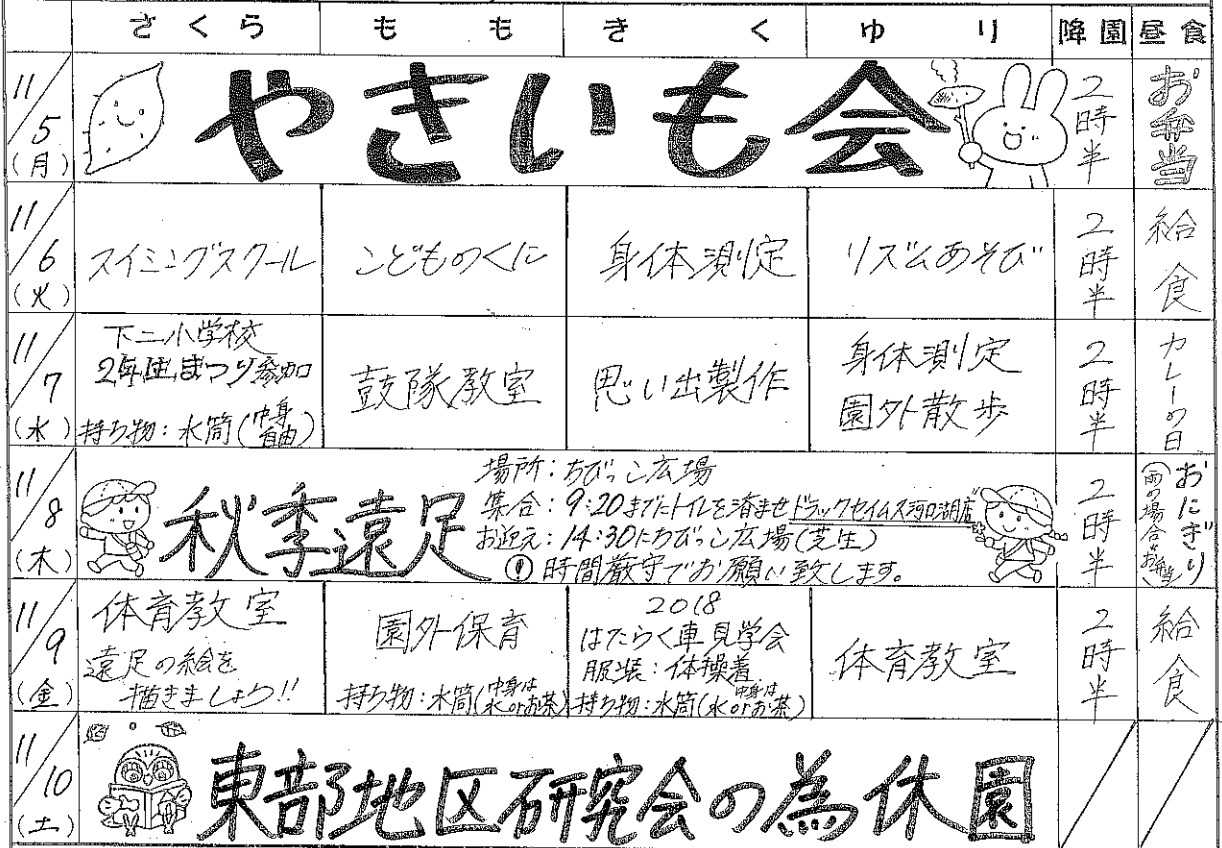 さくら もも きく ゆり 降園 昼食
11/5(月) やきいも会 2時半 お弁当
11/6(火) スイミングスクール こどものくに 身体測定 リズムあそび 2時半 給食
11/7(水)
下二小学校
2年生まつり参加
持ち物:水筒(中身自由)
鼓隊教室
思い出製作
身体測定
園外散歩
2時半
カレーの日
11/8(木)
秋季遠足
場所:ちびっこ広場
集合:9:20までにトイレを済ませドラックセイムス河口湖店
お迎え:14:30にちびっこ広場(芝生)
! 時間厳守でお願い致します。
2時半
おにぎり
(雨の場合お弁当)
11/9(金)
体育教室
遠足の絵を
描きましょう!!
園外保育
持ち物:水筒(中身は水orお茶)
2018
はたらく車見学会
服装:体操着
持ち物:水筒(中身は水orお茶)
体育教室
2時半
給食
11/10(土)
東部地区研究会の為休園